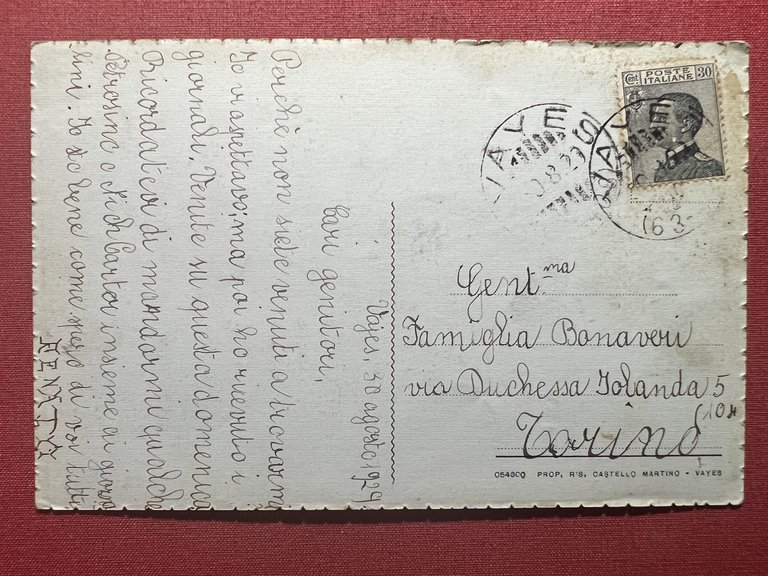 Vajes, 30 agosto 1929.
Cari genitori,
Perchè non siete venuti a trovarmi
Io vi aspettavo, ma poi ho ricevuto i
giornali. Venite su questa domenica
Ricordatevi di mandarmi qualche
Petrosino e Nich Carter insieme ai giorna
lini. Io sto bene come spero di voi tutti
RENATO
Cent. POSTE ITALIANE 30
VAYES
VAYES
Gent.ma
Famiglia Bonaveri
via Duchessa Jolanda 5
(10)
Torino
054900 PROP. R'S. CASTELLO MARTINO - VAYES